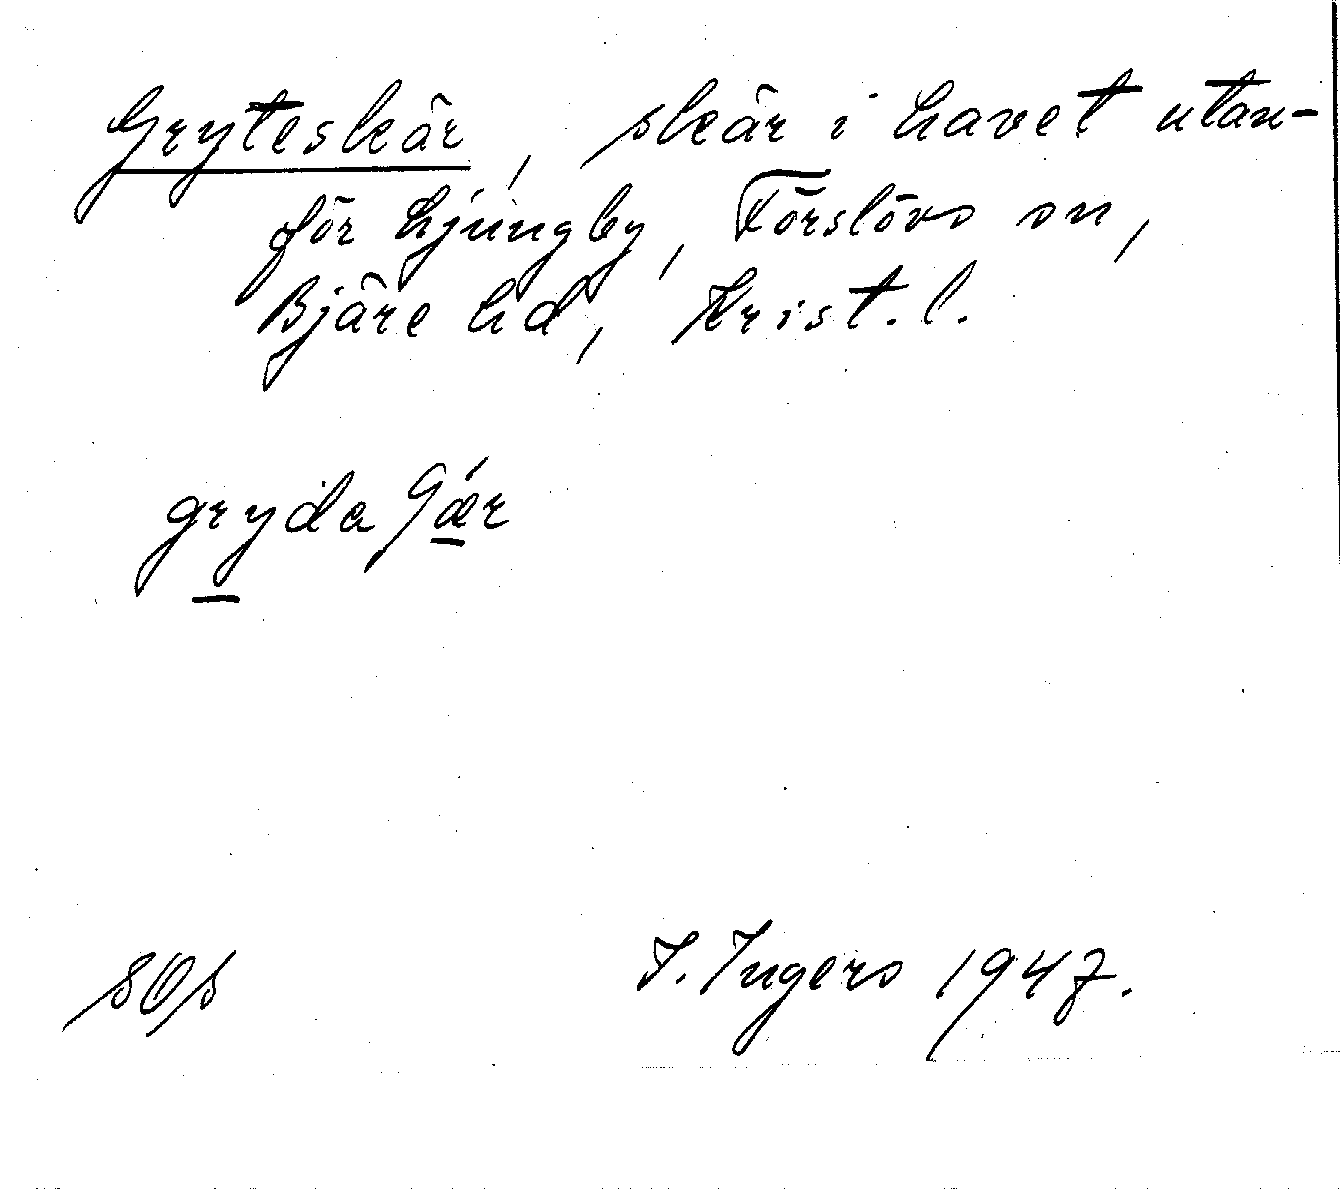 Gryteskär, skär i havet utan-
för Ljungby, Förslövs sn,
Bjäre hd, Krist. l.
gryda
I. Ingers 1947.